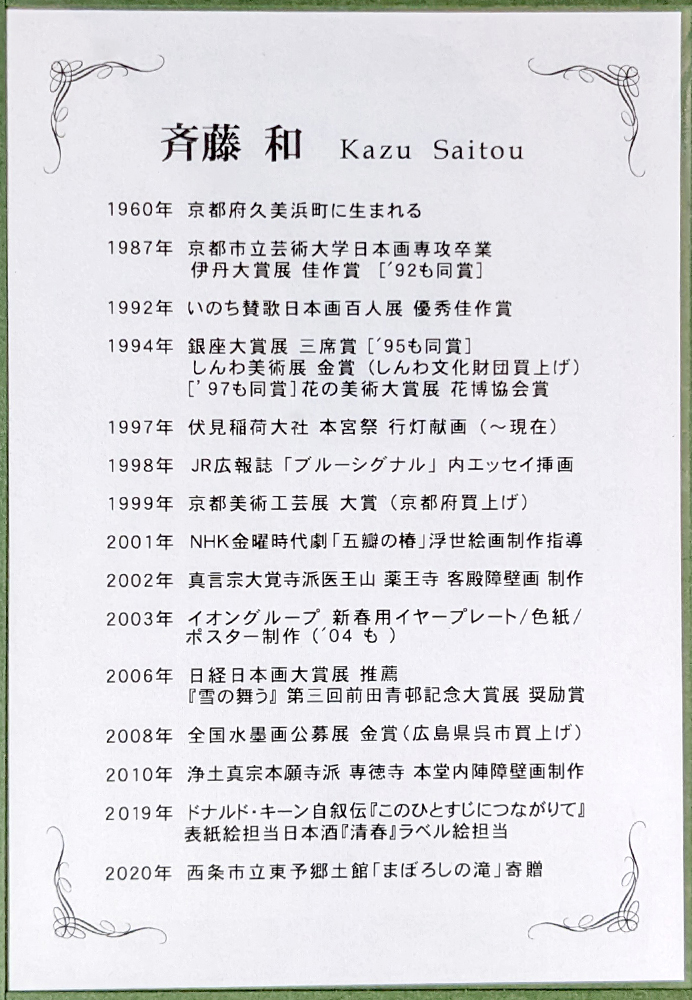 斉藤 和 Kazu Saitou
1960年 京都府久美浜町に生まれる
1987年 京都市立芸術大学日本画専攻卒業
伊丹大賞展 佳作賞 [´92も同賞]
1992年 いのち賛歌日本画百人展 優秀佳作賞
1994年 銀座大賞展 三席賞 [´95も同賞]
しんわ美術展 金賞 (しんわ文化財団買上げ)
[’97も同賞]花の美術大賞展 花博協会賞
1997年 伏見稲荷大社 本宮祭 行灯献画 (～現在)
1998年 JR広報誌「ブルーシグナル」内エッセイ挿画
1999年 京都美術工芸展 大賞 (京都府買上げ)
2001年 NHK金曜時代劇「五瓣の椿」浮世絵画制作指導
2002年 真言宗大覚寺派医王山 薬王寺 客殿障壁画 制作
2003年 イオングループ 新春用イヤープレート/色紙/
ポスター制作 (´04 も )
2006年 日経日本画大賞展 推薦
『雪の舞う』 第三回前田青邨記念大賞展 奨励賞
2008年 全国水墨画公募展 金賞(広島県呉市買上げ)
2010年 浄土真宗本願寺派 専徳寺 本堂内陣障壁画制作
2019年 ドナルド・キーン自叙伝『このひとすじにつながりて』
表紙絵担当日本酒『清春』ラベル絵担当
2020年 西条市立東予郷土館「まぼろしの滝」寄贈